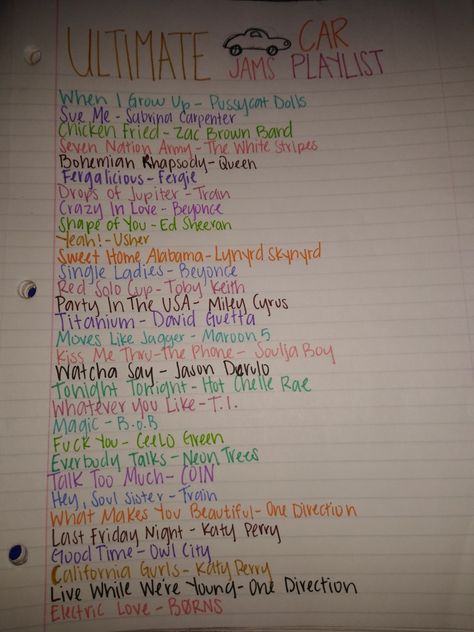 ULTIMATE CAR
JAMS PLAYLIST
When I Grow Up - Pussycat Dolls
Sue Me - Sabrina Carpenter
Chicken Fried - Zac Brown Band
Seven Nation Army - The White Stripes
Bohemian Rhapsody - Queen
Fergalicious - Fergie
Drops of Jupiter - Train
Crazy In Love - Beyonce
Shape of You - Ed Sheeran
Yeah! - Usher
Sweet Home Alabama - Lynyrd Skynyrd
Single Ladies - Beyonce
Red Solo Cup - Toby Keith
Party In The USA - Miley Cyrus
Titanium - David Guetta
Moves Like Jagger - Maroon 5
Kiss Me Thru-the Phone - Soulja Boy
Watcha Say - Jason Derulo
Tonight Tonight - Hot Chelle Rae
Whatever You Like - T.I.
Magic - B.o.B
Fuck You - CeeLo Green
Everbody Talks - Neon Trees
Talk Too Much - COIN
Hey, Soul Sister - Train
What Makes You Beautiful - One Direction
Last Friday Night - Katy Perry
Good Time - Owl City
California Gurls - Katy Perry
Live While We're Young - One Direction
Electric Love - BØRNS